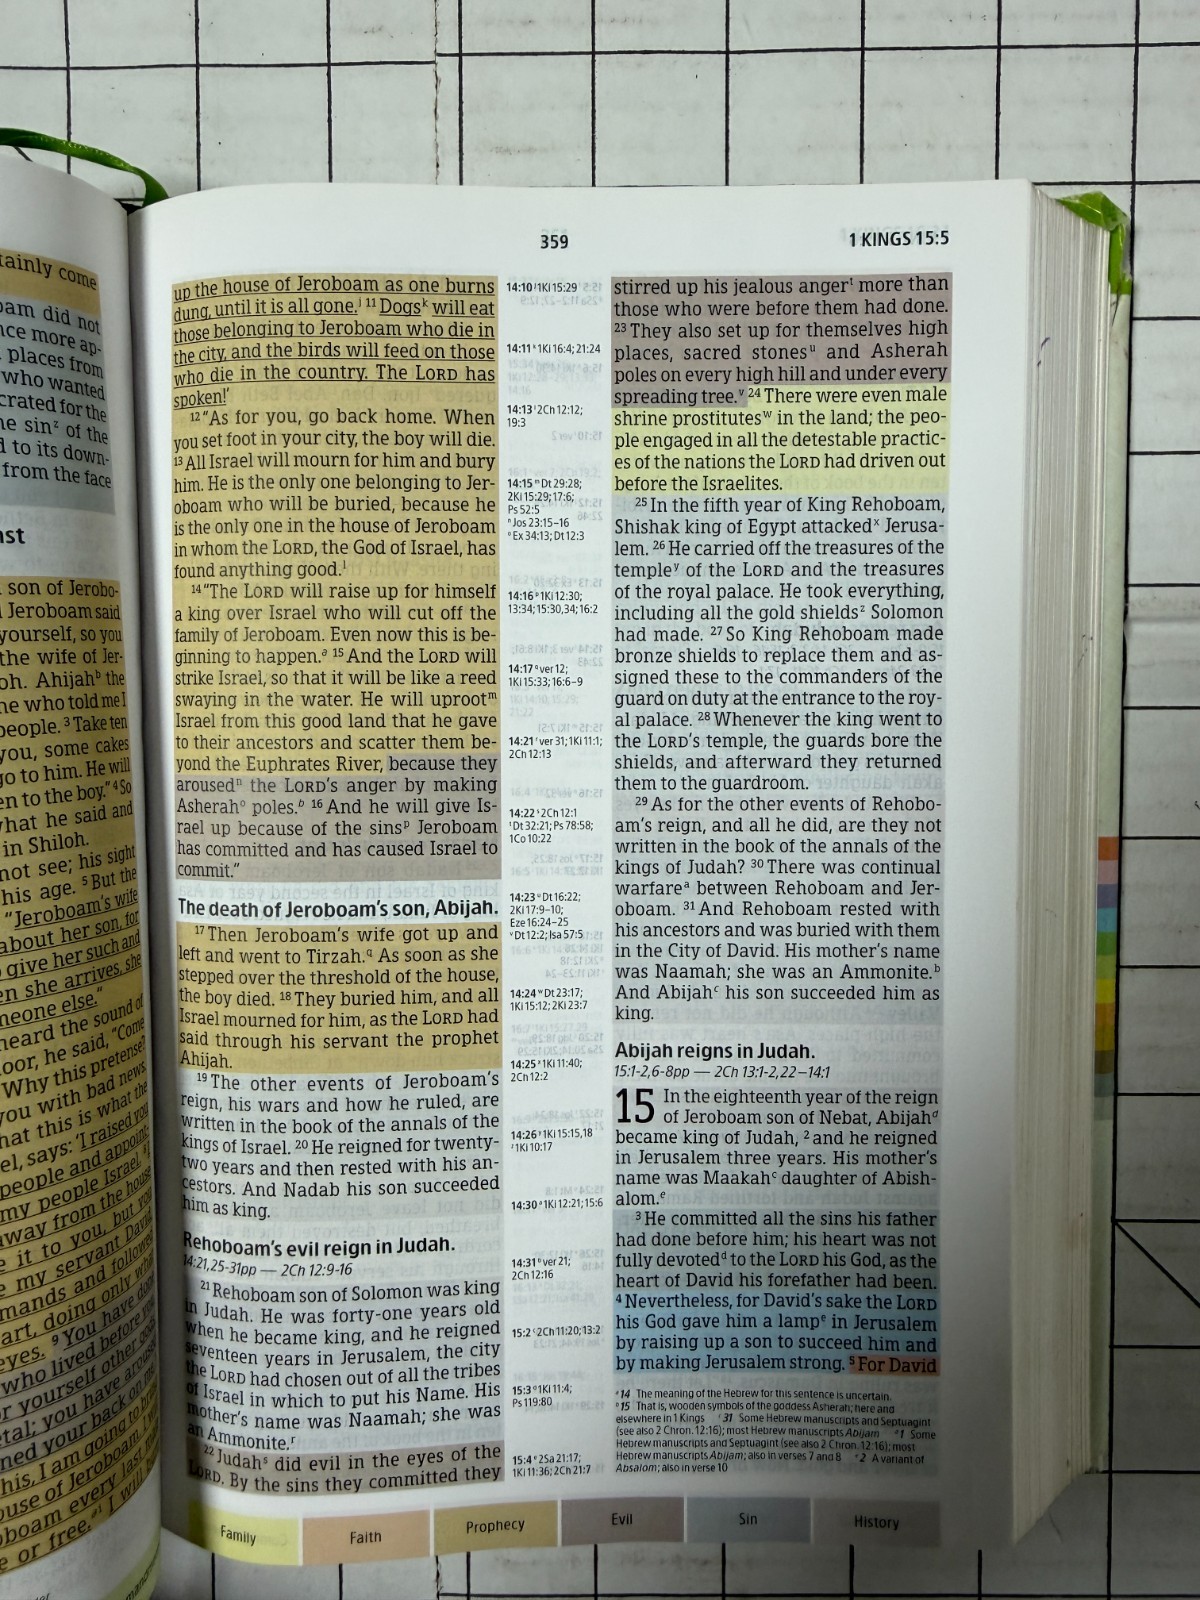 tainly come
am did not
nce more ap-
places from
who wanted
crated for the
he sin z of the
d to its down-
from the face
nst
son of Jerobo-
Jeroboam said
yourself, so you
the wife of Jer-
oh. Ahijah b the
he who told me I
people. 3 Take ten
you, some cakes
go to him. He will
en to the boy.” 4 So
hat he said and
in Shiloh.
not see; his sight
his age. 5 But the
“Jeroboam’s wife
about her son, for
give her such and
en she arrives, she
meone else.”
heard the sound of
oor, he said, “Come
Why this pretense?
you with bad news.
hat this is what the
el, says: ‘I raised you
people and appoint-
my people Israel.
away from the house
e it to you, but you
e my servant David,
mands and followed
art, doing only what
eyes. 9 You have done
who lived before you
r yourself other gods,
etal; you have aroused
ned your back on me.
this, I am going to bring
ouse of Jeroboam. I will
oboam every last male
e or free. I will burn
359
1 KINGS 15:5
up the house of Jeroboam as one burns
dung, until it is all gone. j 11 Dogs k will eat
those belonging to Jeroboam who die in
the city, and the birds will feed on those
who die in the country. The LORD has
spoken!’
12 “As for you, go back home. When
you set foot in your city, the boy will die.
13 All Israel will mourn for him and bury
him. He is the only one belonging to Jer-
oboam who will be buried, because he
is the only one in the house of Jeroboam
in whom the LORD, the God of Israel, has
found anything good. l
14 “The LORD will raise up for himself
a king over Israel who will cut off the
family of Jeroboam. Even now this is be-
ginning to happen. a 15 And the LORD will
strike Israel, so that it will be like a reed
swaying in the water. He will uproot m
Israel from this good land that he gave
to their ancestors and scatter them be-
yond the Euphrates River, because they
aroused n the LORD’s anger by making
Asherah o poles. b 16 And he will give Is-
rael up because of the sins p Jeroboam
has committed and has caused Israel to
commit.”
The death of Jeroboam’s son, Abijah.
17 Then Jeroboam’s wife got up and
left and went to Tirzah. q As soon as she
stepped over the threshold of the house,
the boy died. 18 They buried him, and all
Israel mourned for him, as the LORD had
said through his servant the prophet
Ahijah.
19 The other events of Jeroboam’s
reign, his wars and how he ruled, are
written in the book of the annals of the
kings of Israel. 20 He reigned for twenty-
two years and then rested with his an-
cestors. And Nadab his son succeeded
him as king.
Rehoboam’s evil reign in Judah.
14:21,25-31pp — 2Ch 12:9-16
21 Rehoboam son of Solomon was king
in Judah. He was forty-one years old
when he became king, and he reigned
seventeen years in Jerusalem, the city
the LORD had chosen out of all the tribes
of Israel in which to put his Name. His
mother’s name was Naamah; she was
an Ammonite. r
22 Judah s did evil in the eyes of the
LORD. By the sins they committed they
14:10 j 1Ki 15:29
14:11 k 1Ki 16:4; 21:24
14:13 l 2Ch 12:12;
19:3
14:15 m Dt 29:28;
2Ki 15:29; 17:6;
Ps 52:5
n Jos 23:15–16
o Ex 34:13; Dt 12:3
14:16 p 1Ki 12:30;
13:34; 15:30,34; 16:2
14:17 q ver 12;
1Ki 15:33; 16:6–9
14:21 r ver 31; 1Ki 11:1;
2Ch 12:13
14:22 s 2Ch 12:1
t Dt 32:21; Ps 78:58;
1Co 10:22
14:23 u Dt 16:22;
2Ki 17:9–10;
Eze 16:24–25
v Dt 12:2; Isa 57:5
14:24 w Dt 23:17;
1Ki 15:12; 2Ki 23:7
14:25 x 1Ki 11:40;
2Ch 12:2
14:26 y 1Ki 15:15,18
z 1Ki 10:17
14:30 a 1Ki 12:21; 15:6
14:31 b ver 21;
2Ch 12:16
15:2 c 2Ch 11:20; 13:2
15:3 d 1Ki 11:4;
Ps 119:80
15:4 e 2Sa 21:17;
1Ki 11:36; 2Ch 21:7
stirred up his jealous anger t more than
those who were before them had done.
23 They also set up for themselves high
places, sacred stones u and Asherah
poles on every high hill and under every
spreading tree. v 24 There were even male
shrine prostitutes w in the land; the peo-
ple engaged in all the detestable practic-
es of the nations the LORD had driven out
before the Israelites.
25 In the fifth year of King Rehoboam,
Shishak king of Egypt attacked x Jerusa-
lem. 26 He carried off the treasures of the
temple y of the LORD and the treasures
of the royal palace. He took everything,
including all the gold shields z Solomon
had made. 27 So King Rehoboam made
bronze shields to replace them and as-
signed these to the commanders of the
guard on duty at the entrance to the roy-
al palace. 28 Whenever the king went to
the LORD’s temple, the guards bore the
shields, and afterward they returned
them to the guardroom.
29 As for the other events of Rehobo-
am’s reign, and all he did, are they not
written in the book of the annals of the
kings of Judah? 30 There was continual
warfare a between Rehoboam and Jer-
oboam. 31 And Rehoboam rested with
his ancestors and was buried with them
in the City of David. His mother’s name
was Naamah; she was an Ammonite. b
And Abijah c his son succeeded him as
king.
Abijah reigns in Judah.
15:1-2,6-8pp — 2Ch 13:1-2,22–14:1
15 In the eighteenth year of the reign
of Jeroboam son of Nebat, Abijah d
became king of Judah, 2 and he reigned
in Jerusalem three years. His mother’s
name was Maakah c daughter of Abish-
alom. e
3 He committed all the sins his father
had done before him; his heart was not
fully devoted d to the LORD his God, as the
heart of David his forefather had been.
4 Nevertheless, for David’s sake the LORD
his God gave him a lamp e in Jerusalem
by raising up a son to succeed him and
by making Jerusalem strong. 5 For David
a 14 The meaning of the Hebrew for this sentence is uncertain.
b 15 That is, wooden symbols of the goddess Asherah; here and
elsewhere in 1 Kings c 31 Some Hebrew manuscripts and Septuagint
(see also 2 Chron. 12:16); most Hebrew manuscripts Abijam d 1 Some
Hebrew manuscripts and Septuagint (see also 2 Chron. 12:16); most
Hebrew manuscripts Abijam; also in verses 7 and 8 e 2 A variant of
Absalom; also in verse 10
Family
Faith
Prophecy
Evil
Sin
History